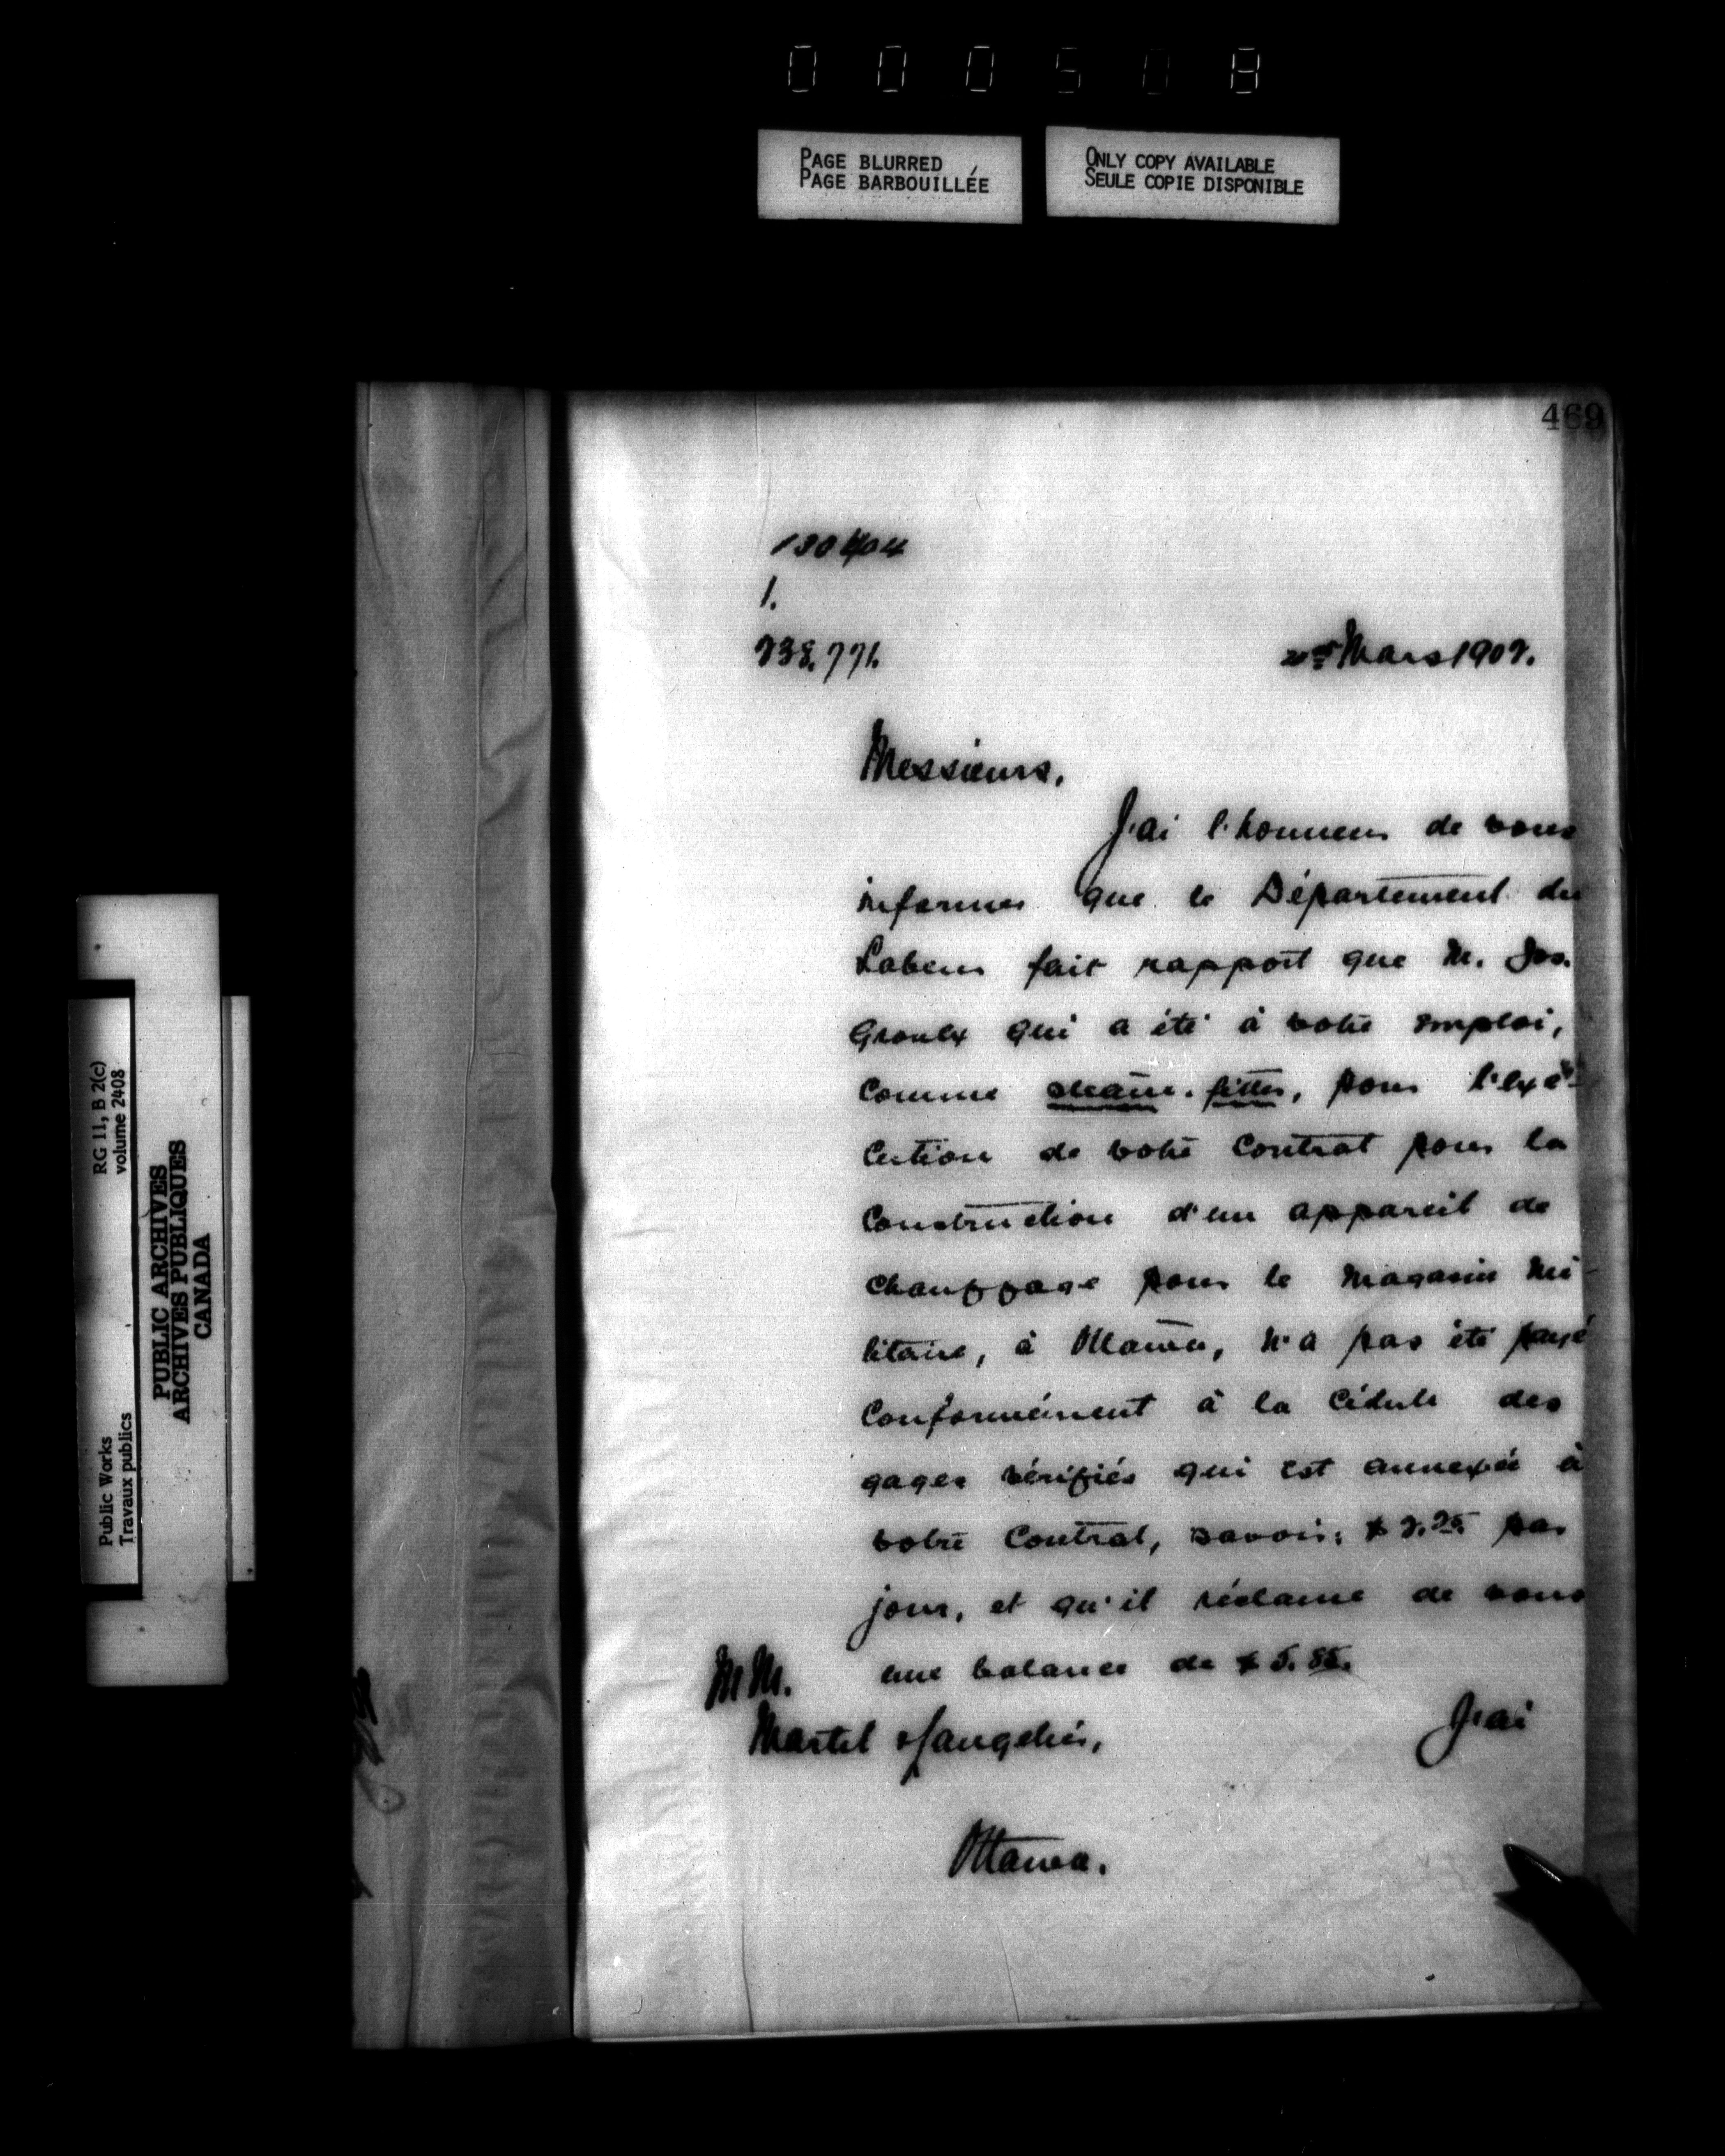 000508
PAGE BLURRED
PAGE BARBOUILLÉE
ONLY COPY AVAILABLE
SEULE COPIE DISPONIBLE
469
1.
Mars 1907.
Messieurs,
J'ai l'honneur de vous
informer que le Département du
Labeur fait rapport que M. Jos.
Groulx qui a été à votre emploi,
comme steam-fitter, pour l'exé-
cution de votre contrat pour la
construction d'un appareil de
chauffage pour le magasin mi-
litaire, à Ottawa, n'a pas été payé
conformément à la cédule des
gages vérifiés qui est annexée à
votre contrat, savoir: $ 2.25 par
jour, et qu'il réclame de vous
une balance de $ 5.85.
J'ai
MM.
Martel &
Ottawa.
Public Works
Travaux publics
RG 11, B 2(c)
volume 2408
PUBLIC ARCHIVES
ARCHIVES PUBLIQUES
CANADA